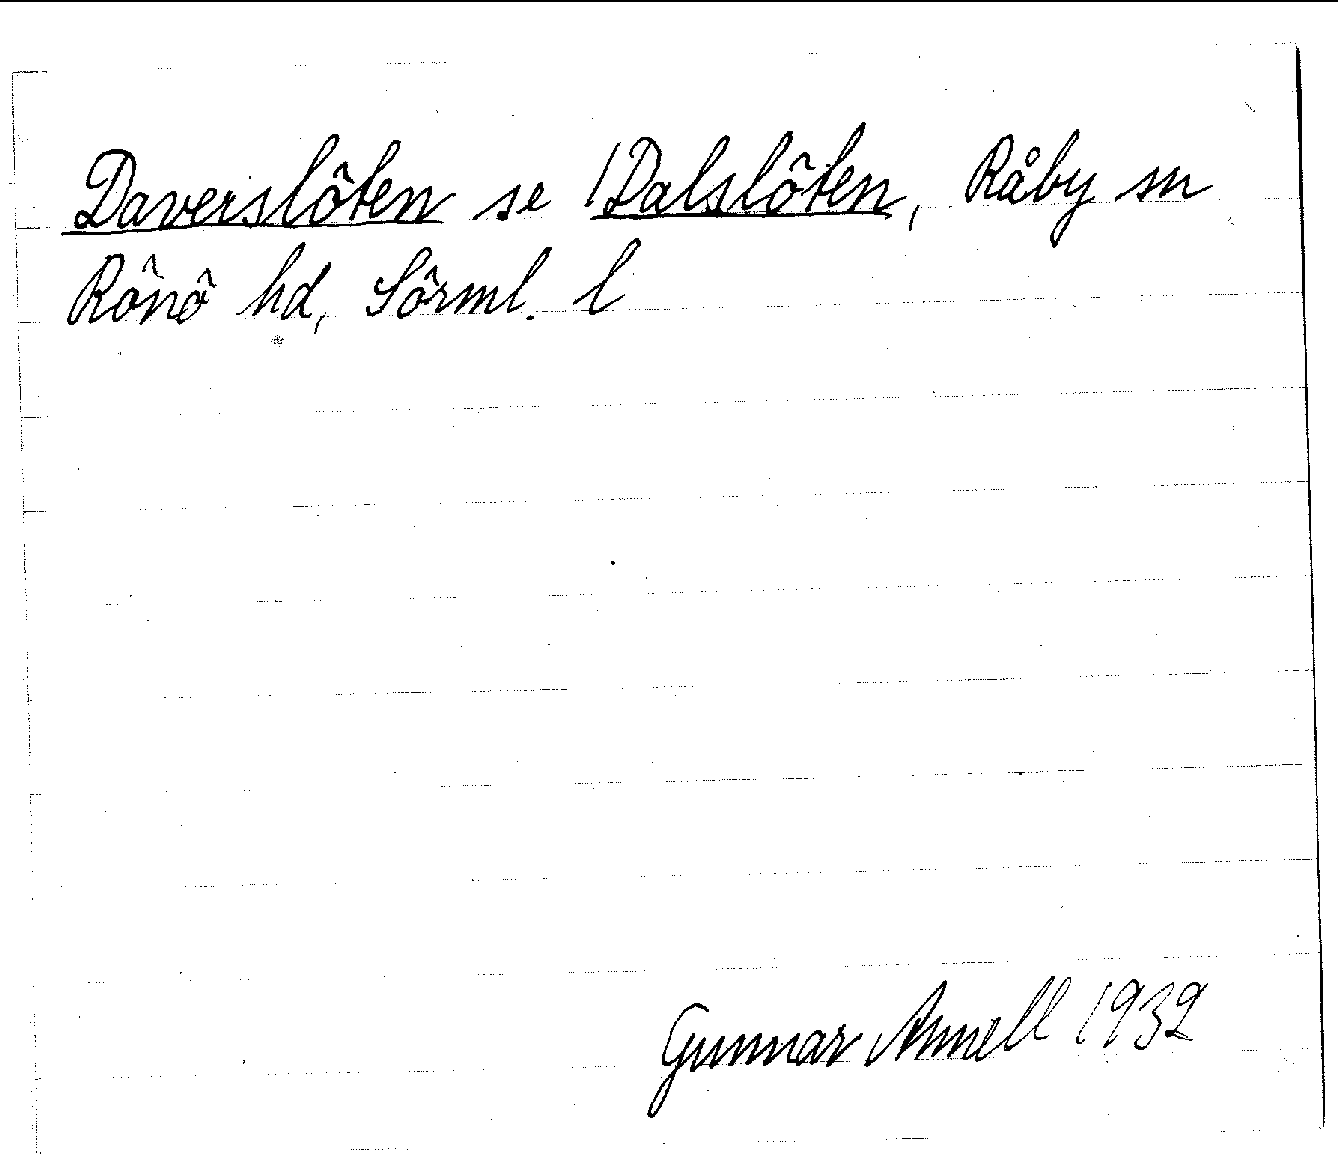 Daverslöten se Dalslöten, Råby sn
Rönö hd, Sörml. l
Gunnar Annell 1932